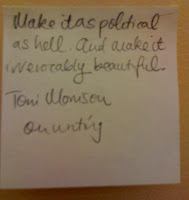 Make it as political
as hell. And make it
irrevocably beautiful.
Toni Morrison
on writing